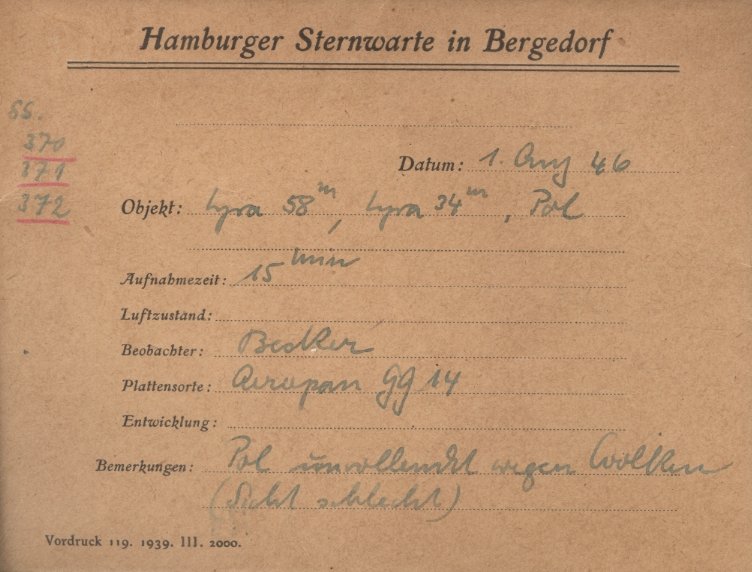 Hamburger Sternwarte in Bergedorf
SS.
370
371
372
Datum: 1. Aug 46
Objekt: Lyra 58ᵐ, Lyra 34ᵐ, Pol
Aufnahmezeit: 15 min
Luftzustand:
Beobachter:
Plattensorte: Aeropan GG 14
Entwicklung:
Bemerkungen: Pol unvollendet wegen Wolken
(Sicht schlecht)
Vordruck 119. 1939. III. 2000.